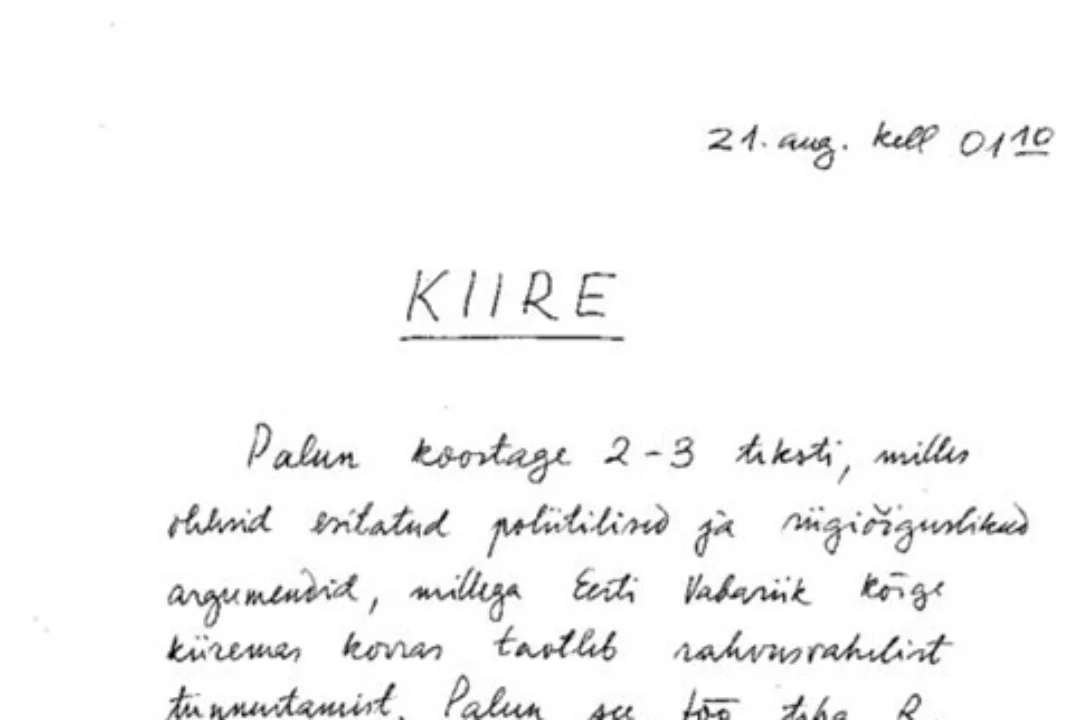 21. aug. kell 01 10
KIIRE
Palun koostage 2-3 teksti, milles
oleksid esitatud poliitilised ja riigiõiguslikud
argumendid, millega Eesti Vabariik kõige
kiiremas korras taotleb rahvusvahelist
tunnustamist. Palun see töö teha